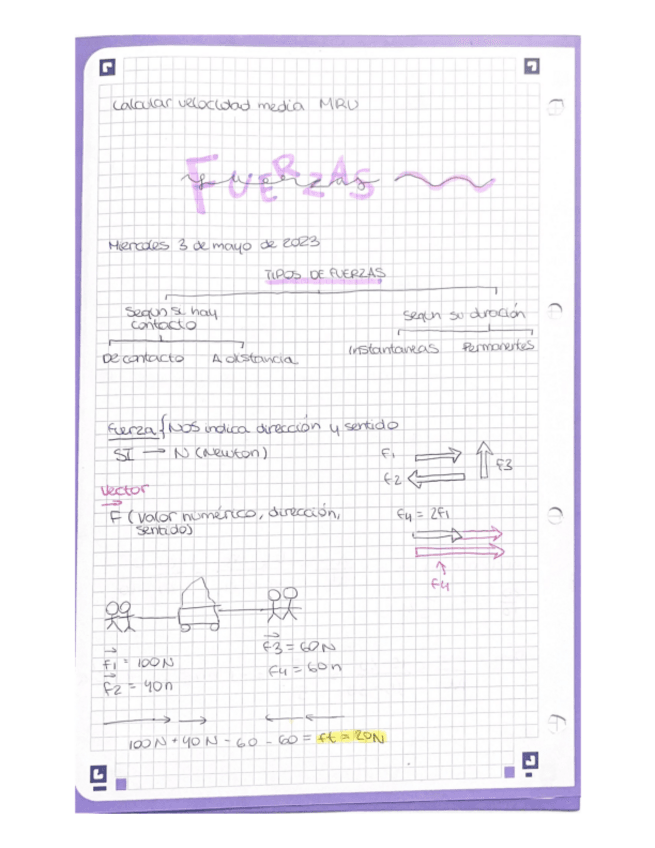 Calcular velocidad media MRU
FUERZAS
fuerzas
Miercoles 3 de mayo de 2023
TIPOS DE FUERZAS
Segun si hay
contacto
segun su duración
De contacto
A distancia
Instantaneas
Permanentes
Fuerza { NOS indica dirección y sentido
SI → N (Newton)
F1
F2
F3
Vector
F (valor numérico, dirección,
sentido)
F4 = 2F1
F4
F1 = 100N
F2 = 40n
F3 = 60N
F4 = 60n
100N + 40N - 60 - 60 = ft = 20N